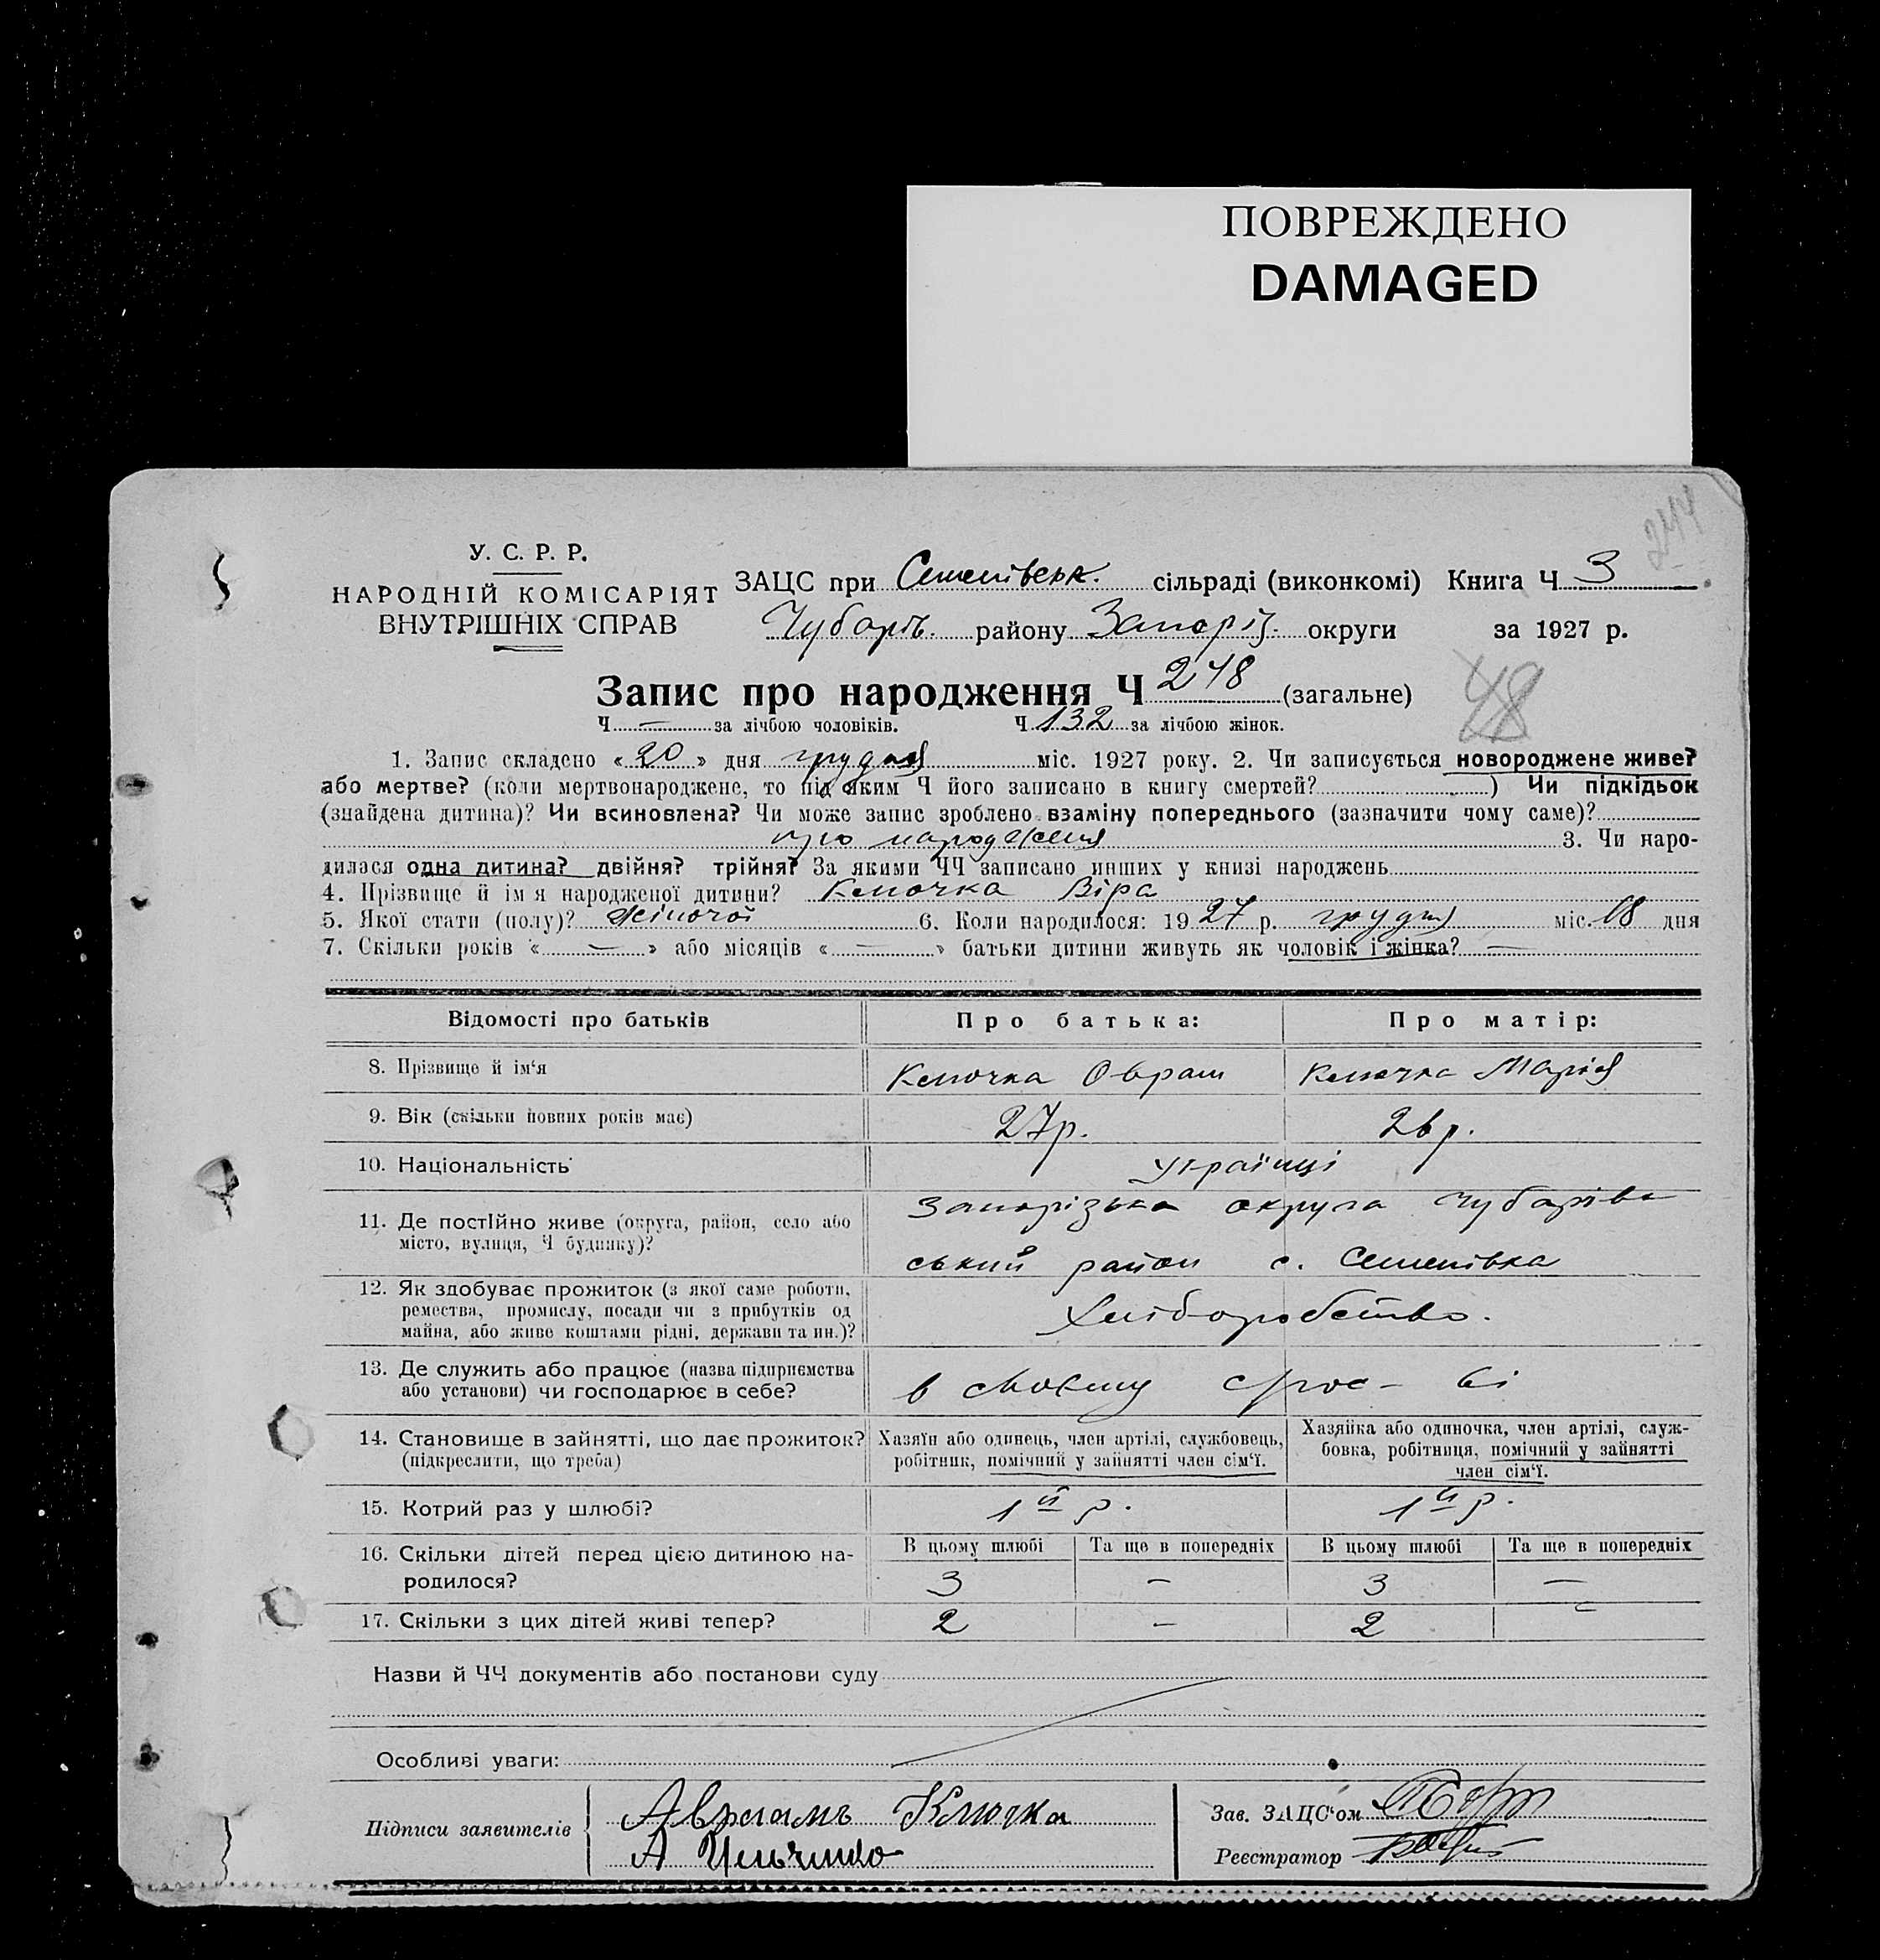 ПОВРЕЖДЕНО
DAMAGED
244
У. С. Р. Р.
НАРОДНІЙ КОМІСАРІЯТ
ВНУТРІШНІХ СПРАВ
ЗАЦС при Семенівськ. сільраді (виконкомі) Книга Ч 3
Чубарів. району Запоріз. округи за 1927 р.
Запис про народження Ч 248 (загальне)
48
Ч — за лічбою чоловіків. Ч 132 за лічбою жінок.
1. Запис складено « 20 » дня грудня міс. 1927 року. 2. Чи записується новороджене живе?
або мертве? (коли мертвонароджене, то під яким Ч його записано в книгу смертей? ) Чи підкідьок
(знайдена дитина)? Чи всиновлена? Чи може запис зроблено взаміну попереднього (зазначити чому саме)?
про народження 3. Чи наро-
дилася одна дитина? двійня? трійня? За якими ЧЧ записано инших у книзі народжень
4. Прізвище й ім я народженої дитини? Клочка Віра
5. Якої стати (полу)? жіночої 6. Коли народилося: 1927 р. грудня міс. 18 дня
7. Скільки років « — » або місяців « — » батьки дитини живуть як чоловік і жінка? —
Відомості про батьків Про батька: Про матір:
8. Прізвище й ім‘я Клочка Оврам Клочка Марія
9. Вік (скільки повних років має) 27р. 26р.
10. Національність українці
11. Де постійно живе (округа, район, село або
місто, вулиця, Ч будинку)? Запорізька округа Чубарівс
ський район с. Семенівка
12. Як здобуває прожиток (з якої саме роботи,
ремества, промислу, посади чи з прибутків од
майна, або живе коштами рідні, держави та ин.)? Хліборобство.
13. Де служить або працює (назва підприємства
або установи) чи господарює в себе? в своєму
14. Становище в зайнятті, що дає прожиток?
(підкреслити, що треба)
Хазяїн або одинець, член артілі, службовець,
робітник, помічний у зайнятті член сім‘ї.
Хазяйка або одиночка, член артілі, служ-
бовка, робітниця, помічний у зайнятті
член сім‘ї.
15. Котрий раз у шлюбі? 1й р. 1й р.
16. Скільки дітей перед цією дитиною на-
родилося?
В цьому шлюбі Та ще в попередніх В цьому шлюбі Та ще в попередніх
3 — 3 —
17. Скільки з цих дітей живі тепер? 2 — 2 —
Назви й ЧЧ документів або постанови суду
Особливі уваги:
Підписи заявителів Аврамъ Клочка
А
Зав. ЗАЦС‘ом
Реєстратор